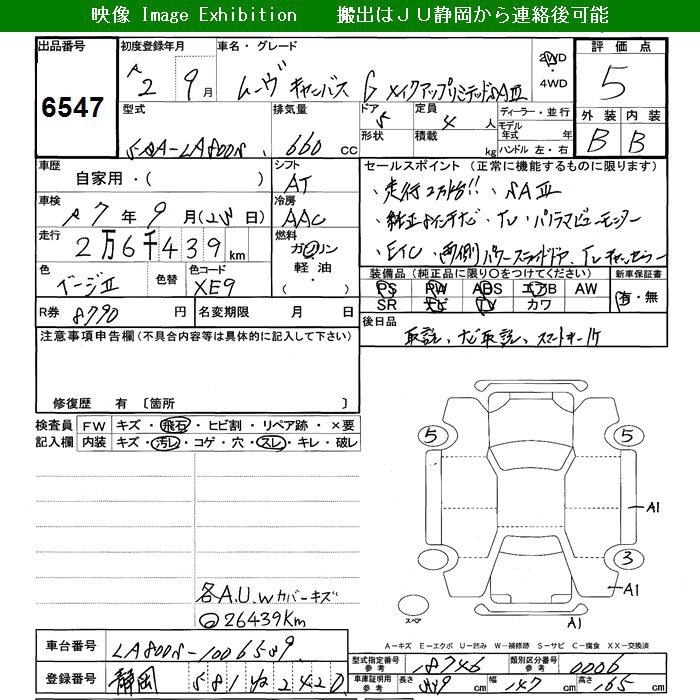 映像 Image Exhibition 搬出はJU静岡から連絡後可能
出品番号
6547
初度登録年月
R2 9月
車名・グレード
ムーヴ キャンバス G メイクアップリミテッド SAⅢ
2WD
・
4WD
評価点
5
外装 内装
B B
型式
5BA-LA800S
排気量
660 cc
ドア
5
形状
定員
4 人
積載
kg
ディーラー・並行
モデル
年式 年
ハンドル 左・右
車歴
自家用・( )
シフト
AT
車検
R7年9月(25日)
冷房
AAC
走行
2万6千439km
燃料
ガソリン
軽油・
( )
色
ベージュⅡ
色替
色コード
XE9
R券 8790 円
名変期限 月 日
セールスポイント (正常に機能するものに限ります)
・走行2万km台!!・SAⅢ
・純正8インチナビ・TV・パノラマビューモニター
・ETC・両側パワースライドドア・TVキャンセラー
装備品(純正品に限り○をつけてください)
PS PW ABS エアB AW
SR ナビ TV カワ
新車保証書
有・無
後日品
取説、ナビ取説、スマートキー1ケ
注意事項申告欄(不具合内容等は具体的に記入して下さい)
修復歴 有 〔箇所 〕
検査員
記入欄
FW キズ・飛石・ヒビ割・リペア跡・×要
内装 キズ・汚レ・コゲ・穴・スレ・キレ・破レ
各A.U.Wカバーキズ
26439Km
5 5
A1
3
A1
スペア
A1
A-キズ E-エクボ U-凹み W-補修跡 S-サビ C-腐食 XX-交換済
車台番号 LA800S-1006589
登録番号 静岡 581
型式指定番号
参考
18746
類別区分番号
参考
0006
車庫証明用
参考
長さ cm
幅 147 cm
高さ 165 cm